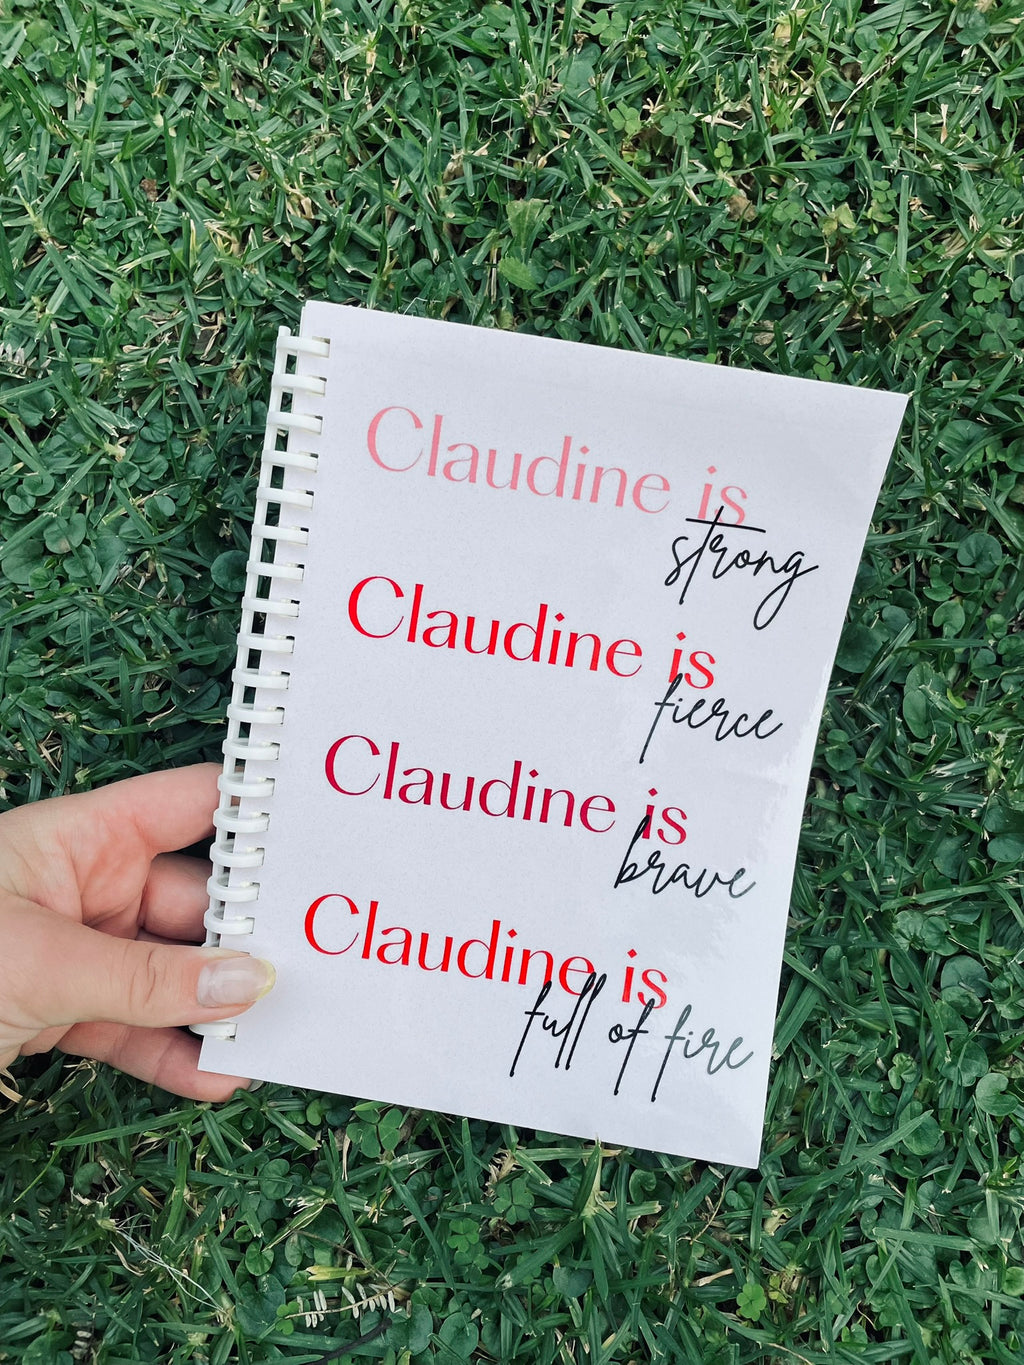 Claudine is
strong
Claudine is
fierce
Claudine is
brave
Claudine is
full of fire